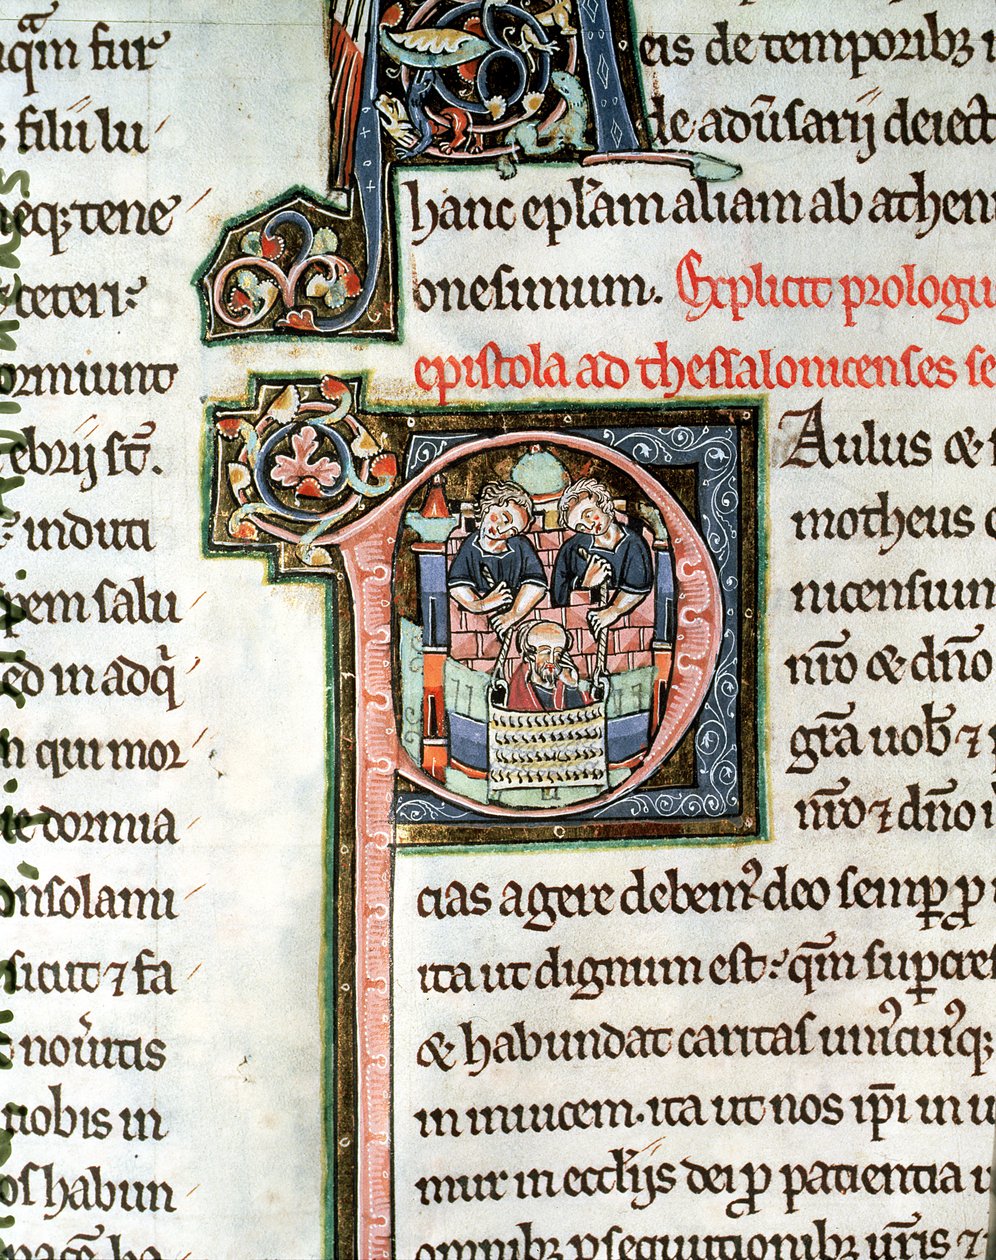 qͣm fur
filii lu
neq; tene
ceteri
dormiunt
ebrij st̄.
induti
spem salu
sed in adq̇
qui mor
dormia
consolami
sicut ⁊ fa
noṽitis
uobis in
os habun
pace
eis de temporibꝫ
de adũsarij deiect
hanc epl̄am aliam ab athen
onesimum. Explicit prologu
epistola ad thessalonicenses se
PAulus & s
motheus
nicensium
nr̄o & dn̄o
gr̄a uob̵ ⁊
nr̄o ⁊ dn̄o
cias agere debemꝰ deo semꝑ ꝓ
ita ut dignum est: qm̄ suꝑcres
& habundat caritas uniꝰcuiꝰq;
in inuicem. ita ut nos ip̄i in u
mur in eccl̄ijs dei ꝓ patientia u
omnibꝫ ꝑsequutionibꝫ ur̄is ⁊